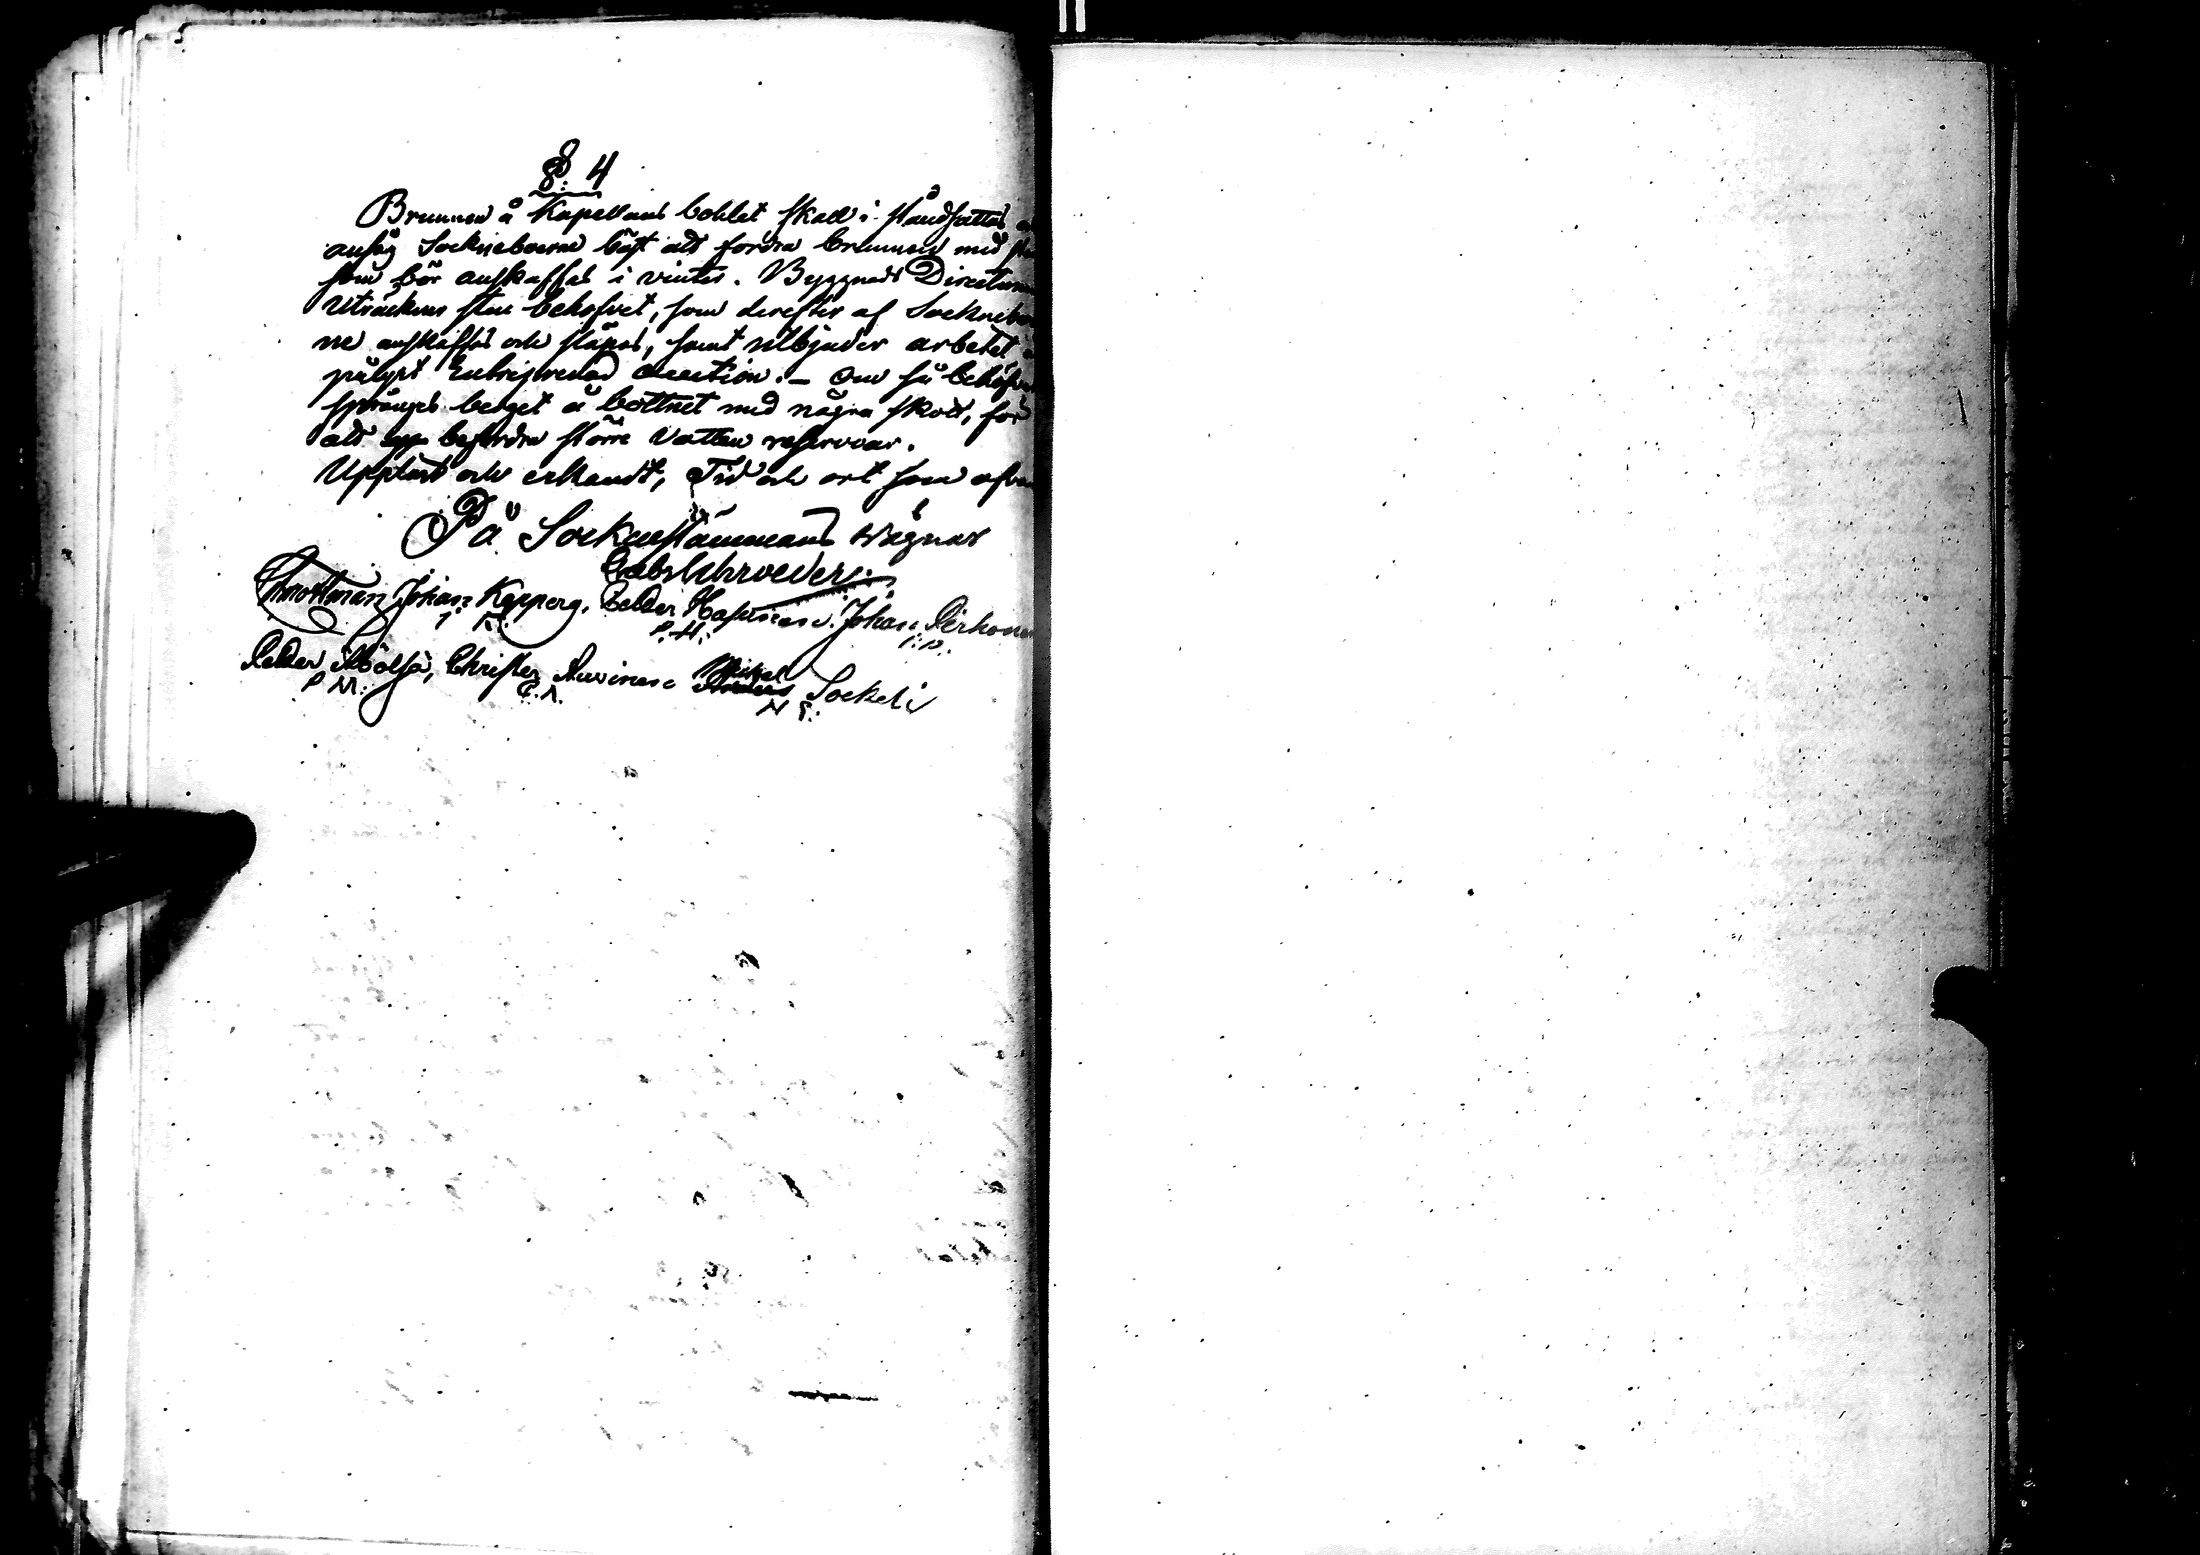 §. 4
Brunnen å Kapellans bohlet skall i ståndsättas
ansåg Sockneboerne bäst att fordra brunnen med
som bör anskaffas i vinter. Byggnads Directeuren
Uträcknar sten behofvet, som derefter af Sockneboer
ne anskaffas och släpas, samt utbjuder arbetet
Entreprenad auction. – Om så behöfves
spränges berget å bottnet med några skott, för
att befordra större Vatten reservoar.
Uppläst och erkändt, Tid och ort som ofvan
På Sockenstämmans Wägnar
Gabr Schroeder.
Johan Kepperg, Petter Hapuinen. Johan Pirhonen
J. K. P. H. J. P.
Petter Mölsä, Christer Auvinen Michel Sockeli
P M. C. A. M S.